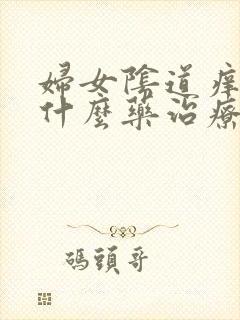 婦女陰道痒
什麼藥治療
碼頭哥